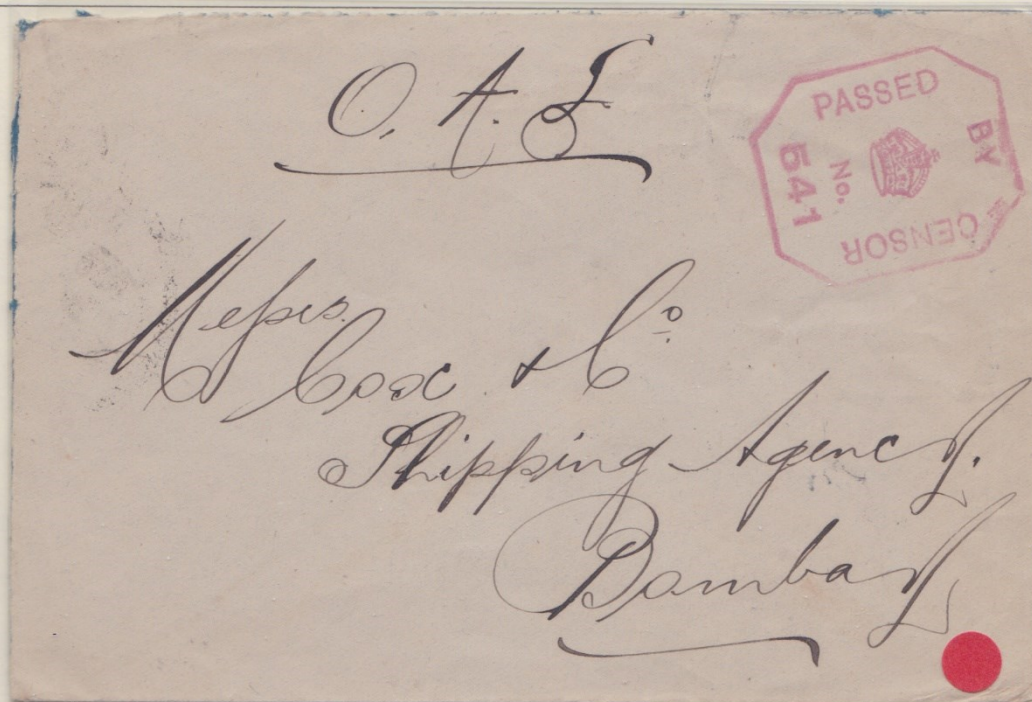 O. A. S
PASSED
BY
CENSOR
No.
541
Messrs.
Cox & Co
Shipping Agency.
Bombay